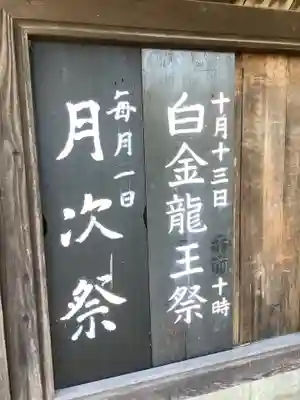 十月十三日
白金龍王祭
午前十時
毎月一日
月次祭